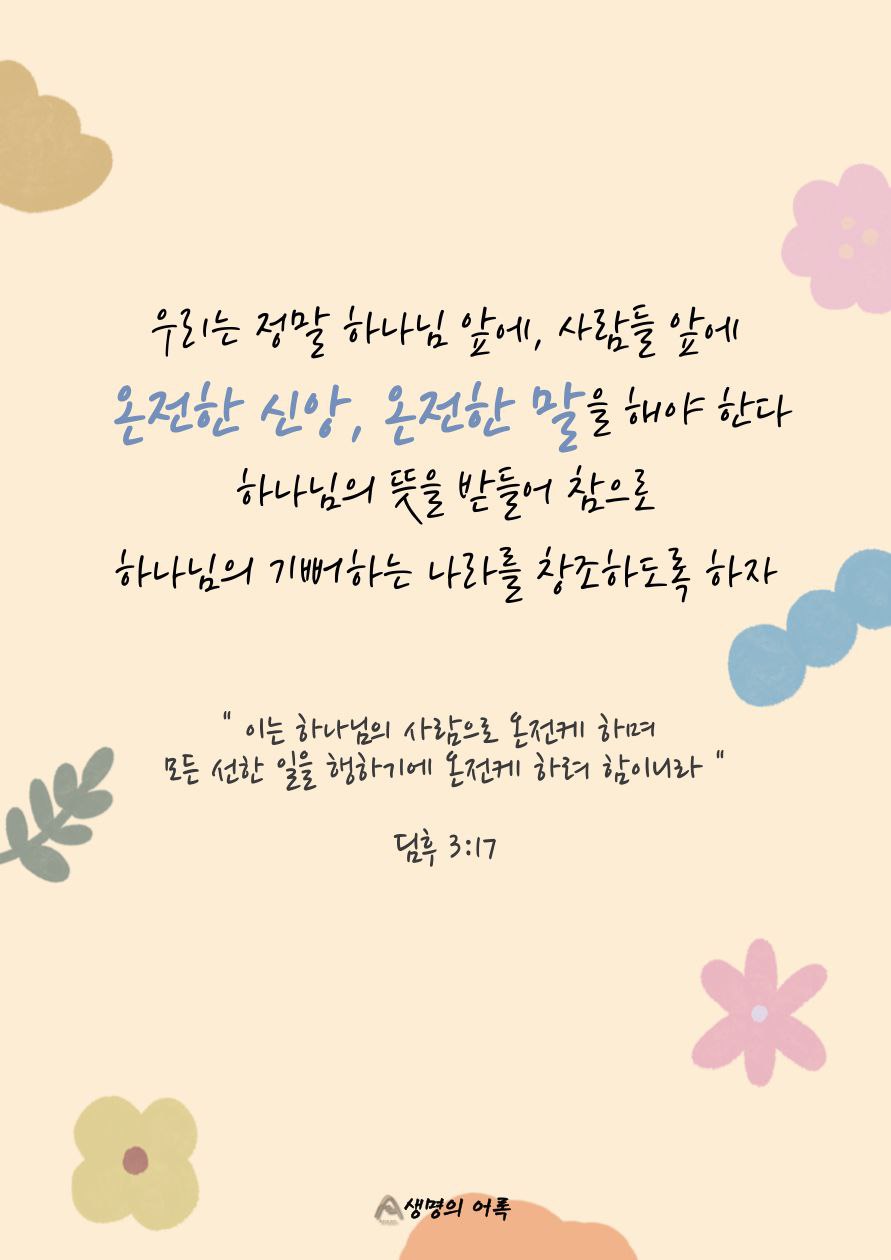 우리는 정말 하나님 앞에, 사람들 앞에
온전한 신앙, 온전한 말을 해야 한다
하나님의 뜻을 받들어 참으로
하나님의 기뻐하는 나라를 창조하도록 하자
" 이는 하나님의 사람으로 온전케 하며
모든 선한 일을 행하기에 온전케 하려 함이니라 "
딤후 3:17
생명의 어록